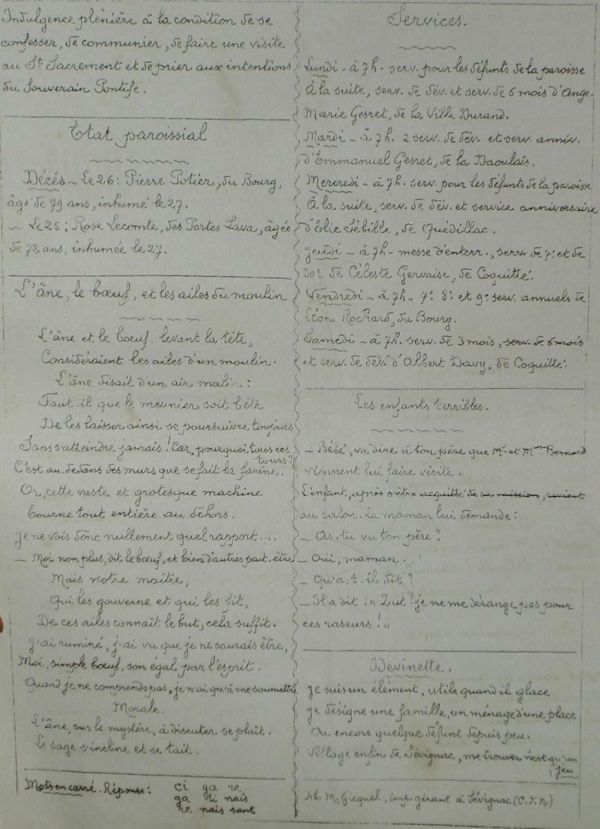 Indulgence plénière à la condition de se
confesser, de communier, de faire une visite
au St Sacrement et de prier aux intentions
du Souverain Pontife.
Etat paroissial
Décès - Le 26: Pierre Potier, du Bourg,
âgé de 79 ans, inhumé le 27.
- Le 25: Rose Lecomte, des Portes Lava, âgée
de 72 ans, inhumée le 27.
L'âne, le bœuf, et les ailes du moulin
L'âne et le bœuf levant la tête,
Considéraient les ailes d'un moulin.
L'âne disait d'un air malin:
Faut-il que le meunier soit bête
De les laisser ainsi se poursuivre toujours
Sans s'atteindre jamais! Car, pourquoi tous ces
tours?
C'est au dedans des murs que se fait la farine.
Or, cette vaste et grotesque machine
Tourne tout entière au dehors.
Je ne vois donc nullement quel rapport....
- Moi non plus, dit le bœuf, et bien d'autres peut-être
Mais notre maître,
Qui les gouverne et qui les fit,
De ces ailes connaît le but, cela suffit.
J'ai ruminé, j'ai vu que je ne saurais être,
Moi, simple bœuf, son égal par l'esprit.
Quand je ne comprends pas, je n'ai qu'à me soumettre
Morale.
L'âne, sur le mystère, à discuter se plaît.
Le sage s'incline et se tait.
Mots en carré. Réponse: ci ga re
ga ti nais
re nais sant
Services.
Lundi - à 7h - serv. pour les défunts de la paroisse
À la suite, serv. de dév. et serv. de 6 mois d'Ange
Marie Gesret, de la Ville Durand.
Mardi - à 7h. 2 serv. de dév. et serv. anniv.
d'Emmanuel Gesret, de la Daoulais.
Mercredi - à 7h. serv. pour les défunts de la paroisse
À la suite, serv. de dév. et service anniversaire
d'Elie Sébille, de Quédillac.
Jeudi - à 7h - messe d'enterr., serv. de 7e et de
30e de Céleste Gervaise, de Coquillé.
Vendredi - à 7h - 7e 8e et 9e serv. annuels de
Léon Rochard, du Bourg.
Samedi - à 7h. serv. de 3 mois, serv. de 6 mois
et serv. de dév. d'Albert Davy, de Coquillé.
Les enfants terribles.
- Bébé, va dire à ton père que Mr et Mme Bernard
viennent lui faire visite.
L'enfant, après s'être acquitté de sa mission, revient
au salon. La maman lui demande:
- As-tu vu ton père?
- Oui, maman.
- Qu'a-t-il dit?
- Il a dit: "Zut! je ne me dérange pas pour
ces raseurs!"
Devinette.
Je suis un élément, utile quand il glace
Je désigne une famille, un ménage d'une place
Ou encore quelque défunt depuis peu.
Village enfin de Sévignac, me trouver n'est qu'un
jeu
M. Gicquel, imp. gérant à Sévignac (C.d.N.)